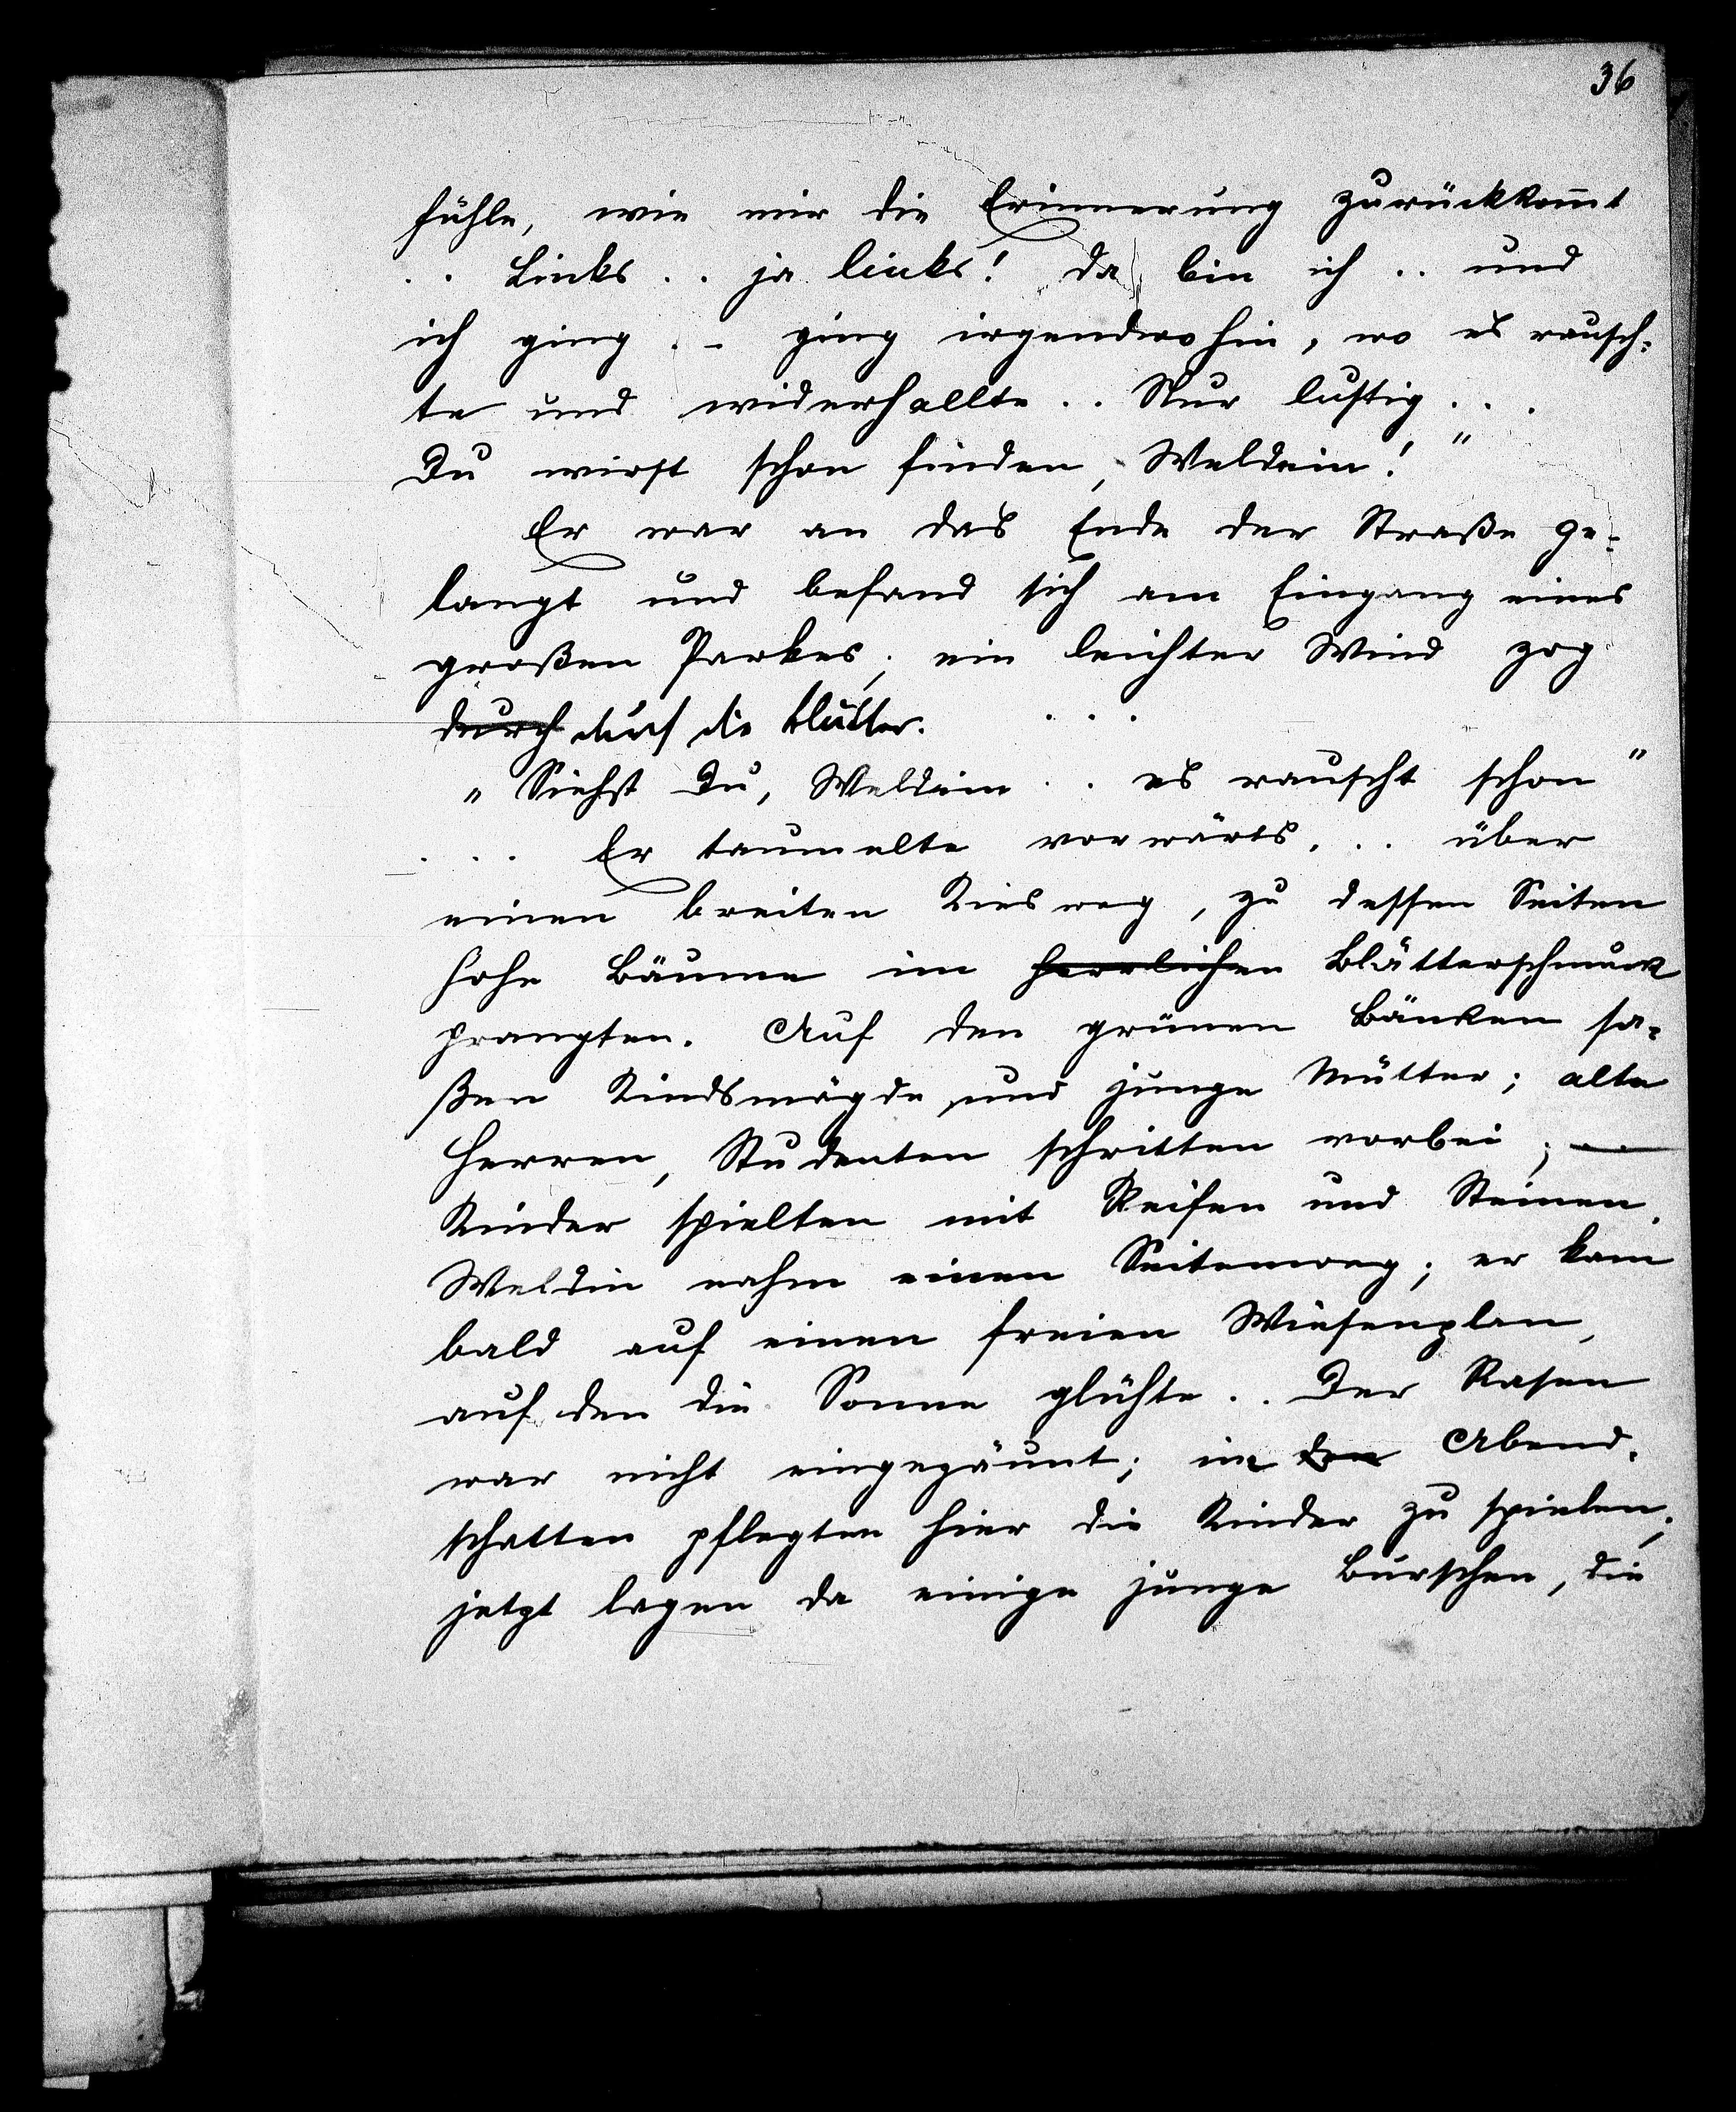 36
fühle, wie mir die Erinnerung zurückkom̅t
.. Links .. ja links! da bin ich .. und
ich ging .. ging irgendwohin, wo es rausch-
te und widerhallte .. Nur lustig ...
Du wirst schon finden, Weldein!"
Er war an das Ende der Straße ge-
langt und befand sich am Eingang eines
großen Parkes; ein leichter Wind zog
durch durch die Blätter. ...
"Siehst Du, Weldein .. es rauscht schon"
... Er taumelte vorwärts ... über
einen breiten Kiesweg, zu dessen Seiten
hohe Bäume im herrlichen Blätterschmuck
prangten. Auf den grünen Bänken sa-
ßen Kindsmägde und junge Mütter; alte
Herren, Studenten schritten vorbei; —
Kinder spielten mit Reifen und Steinen.
Weldein nahm einen Seitenweg; er kam
bald auf einen freien Wiesenplan,
auf den die Sonne glühte .. Der Rasen
war nicht eingezäunt; im den Abend-
schatten pflegten hier die Kinder zu spielen;
jetzt lagen da einige junge Burschen, die